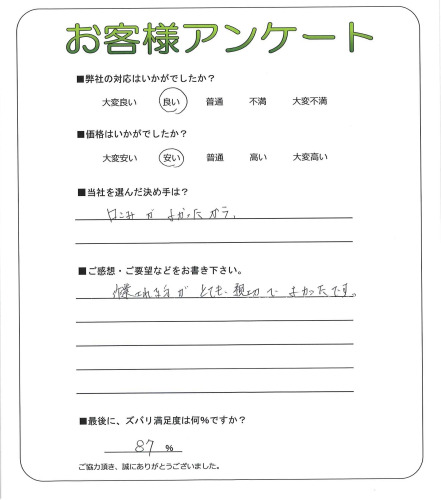 お客様アンケート
■弊社の対応はいかがでしたか？
大変良い 良い 普通 不満 大変不満
■価格はいかがでしたか？
大変安い 安い 普通 高い 大変高い
■当社を選んだ決め手は？
口こみが よかったから。
■ご感想・ご要望などをお書き下さい。
が とても 親切で よかったです。
■最後に、ズバリ満足度は何%ですか？
87 %
ご協力頂き、誠にありがとうございました。